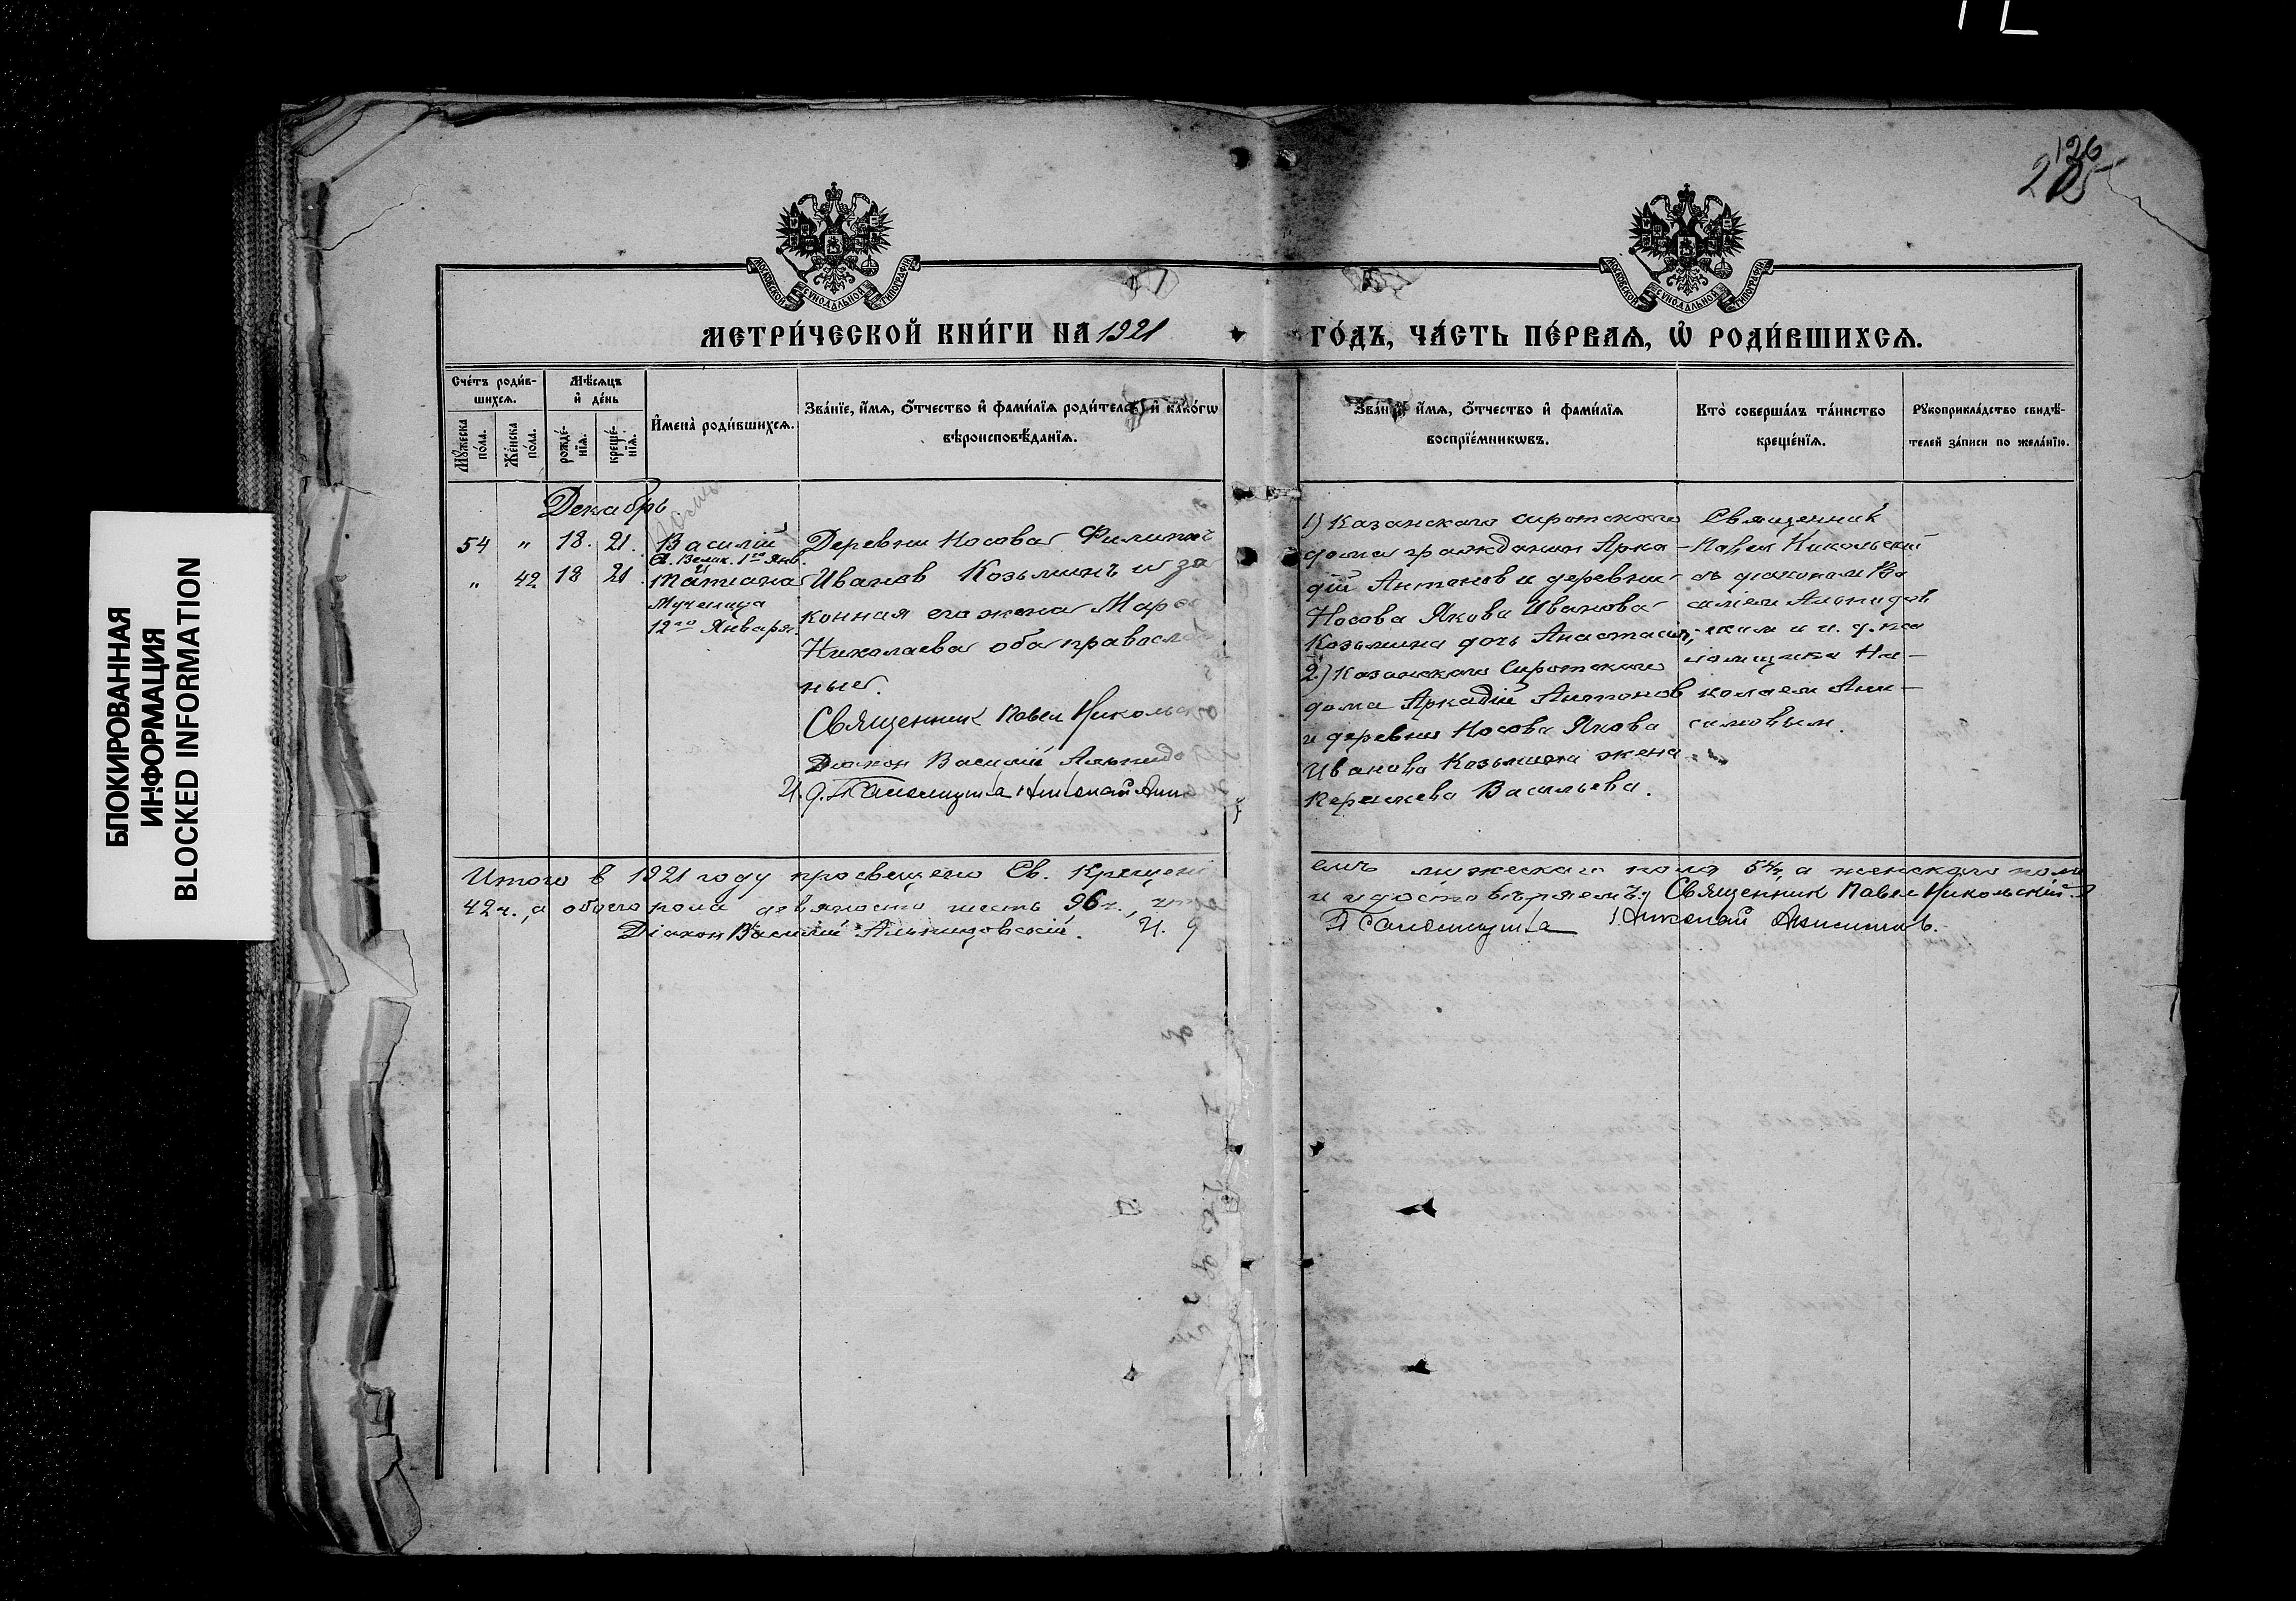 БЛОКИРОВАННАЯ
ИНФОРМАЦИЯ
BLOCKED INFORMATION
126
205
МОСКОВСКОЙ СУНОДАЛЬНОЙ ТИПОГРАФІИ
МОСКОВСКОЙ СУНОДАЛЬНОЙ ТИПОГРАФІИ
МЕТРИ́ЧЕСКОЙ КНИ́ГИ НА 1921
ГО́ДЪ, ЧА́СТЬ ПЕ́РВАѦ, Ѽ РОДИ́ВШИХСѦ.
Сче́тъ роди́в-
шихсѧ.
Мꙋ́жеска по́ла.
Же́нска по́ла.
Мѣ́сѧцъ
и҆ де́нь
рожде́-
нїѧ.
креще́-
нїѧ.
И҆мена̀ роди́вшихсѧ.
Зва́нїе, и҆́мѧ, ѻ҆́тчество и҆ фами́лїѧ роди́телей и҆ како́гѡ
вѣроисповѣ́данїѧ.
Зва́нїе, и҆́мѧ, ѻ҆́тчество и҆ фами́лїѧ
воспрїе́мникѡвъ.
Кто̀ соверша́лъ та́инство
креще́нїѧ.
Рꙋкоприкла́дство свидѣ́-
телей за́писи по жела́нїю.
Декабрь
54 " 18. 21. Василій
Св. Велик. 1го Янв.
" 42 18 21 Татіана
Мученица
12го Января.
Деревни Носова Филипп
Иванов Козьминъ и за
конная его жена Мар
Николаева оба правосла
ные.
Священник Павел Никольск
Діакон Василій Альпидо
И. д. Псаломщика Николай Ани
1) Казанского сиротского
дома гражданин Арка-
дій Антонов и деревни
Носова Якова Иванова
Козьмина дочь Анастасія;
2) Казанского Сиротского
дома Аркадій Антонов
и деревни Носова Якова
Иванова Козьмина жена
Васильева.
Священник
Павел Никольскій
съ діаконом Ва
силіем Альпидов
ским и и. д. пса
ломщика Ни-
колаем Ани-
симовым.
Итого в 1921 году просвещено Св. Крещені
емъ мужеского пола 54, а женского пола
42 ч., а обоего пола девяносто шесть 96 ч., что
и удостоверяемъ: Священник Павел Никольскій
Діакон Василій Альпидовскій. И. д
Псаломщика Николай Анисимов.